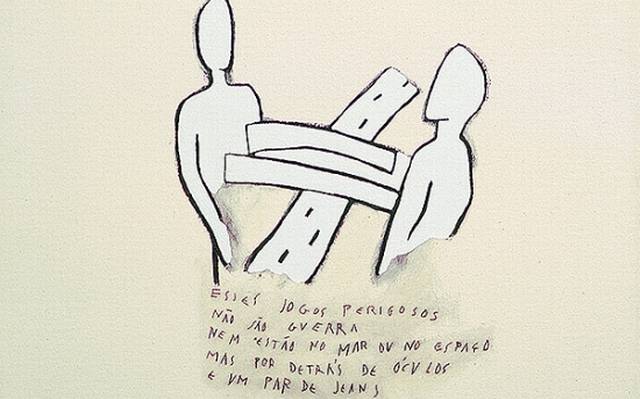 ESSES JOGOS PERIGOSOS
NÃO SÃO GUERRA
NEM ESTÃO NO MAR OU NO ESPAÇO
MAS POR DETRÁS DE ÓCULOS
E UM PAR DE JEANS